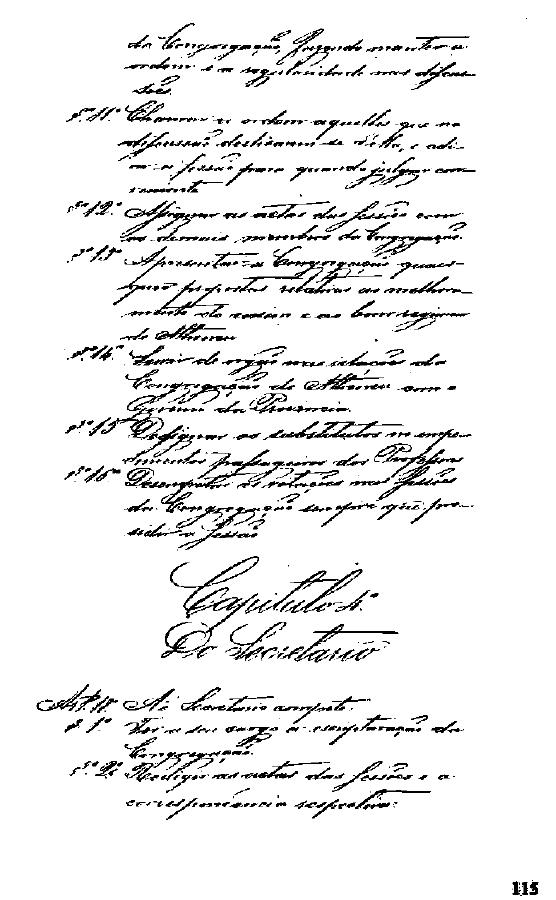 da Congregação, fazendo manter a
ordem e a regularidade nas discus-
sões.
§.º 11.º Chamar a ordem aquelles que na
discussão deslisarem-se d'ella, e adi-
ar a sessão para quando julgar con-
veniente.
§.º 12.º Assignar as actas das sessões com
os demais membros da Congregação.
§.º 13.º Apresentar a Congregação quaes-
quer propostas relativas ao melhora-
mento do ensino e ao bom regimen
do Atheneu
§.º 14.º Servir de orgão nas relações da
Congregação do Atheneu com o
Governo da Provincia.
§.º 15.º Designar os substitutos nos impe-
dimentos passageiros dos Professores
§.º 16.º Desempatar as votações nas sessões
da Congregação sempre que pre-
sidir a sessão
Capitulo 4.º
Do Secretario
Art. 18. Ao Secretario compete:
§. 1.º Ter a seu cargo a escripturação da
Congregação.
§.º 2.º Redigir as actas das sessões e a
correspondencia respectiva.
115